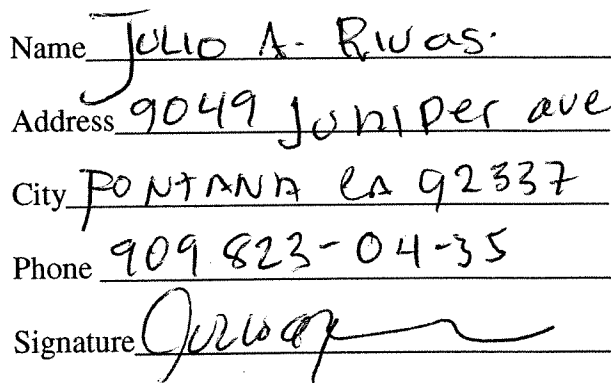 Name Julio A. Rivas.
Address 9049 Juniper ave
City FONTANA CA 92337
Phone 909 823-04-35
Signature